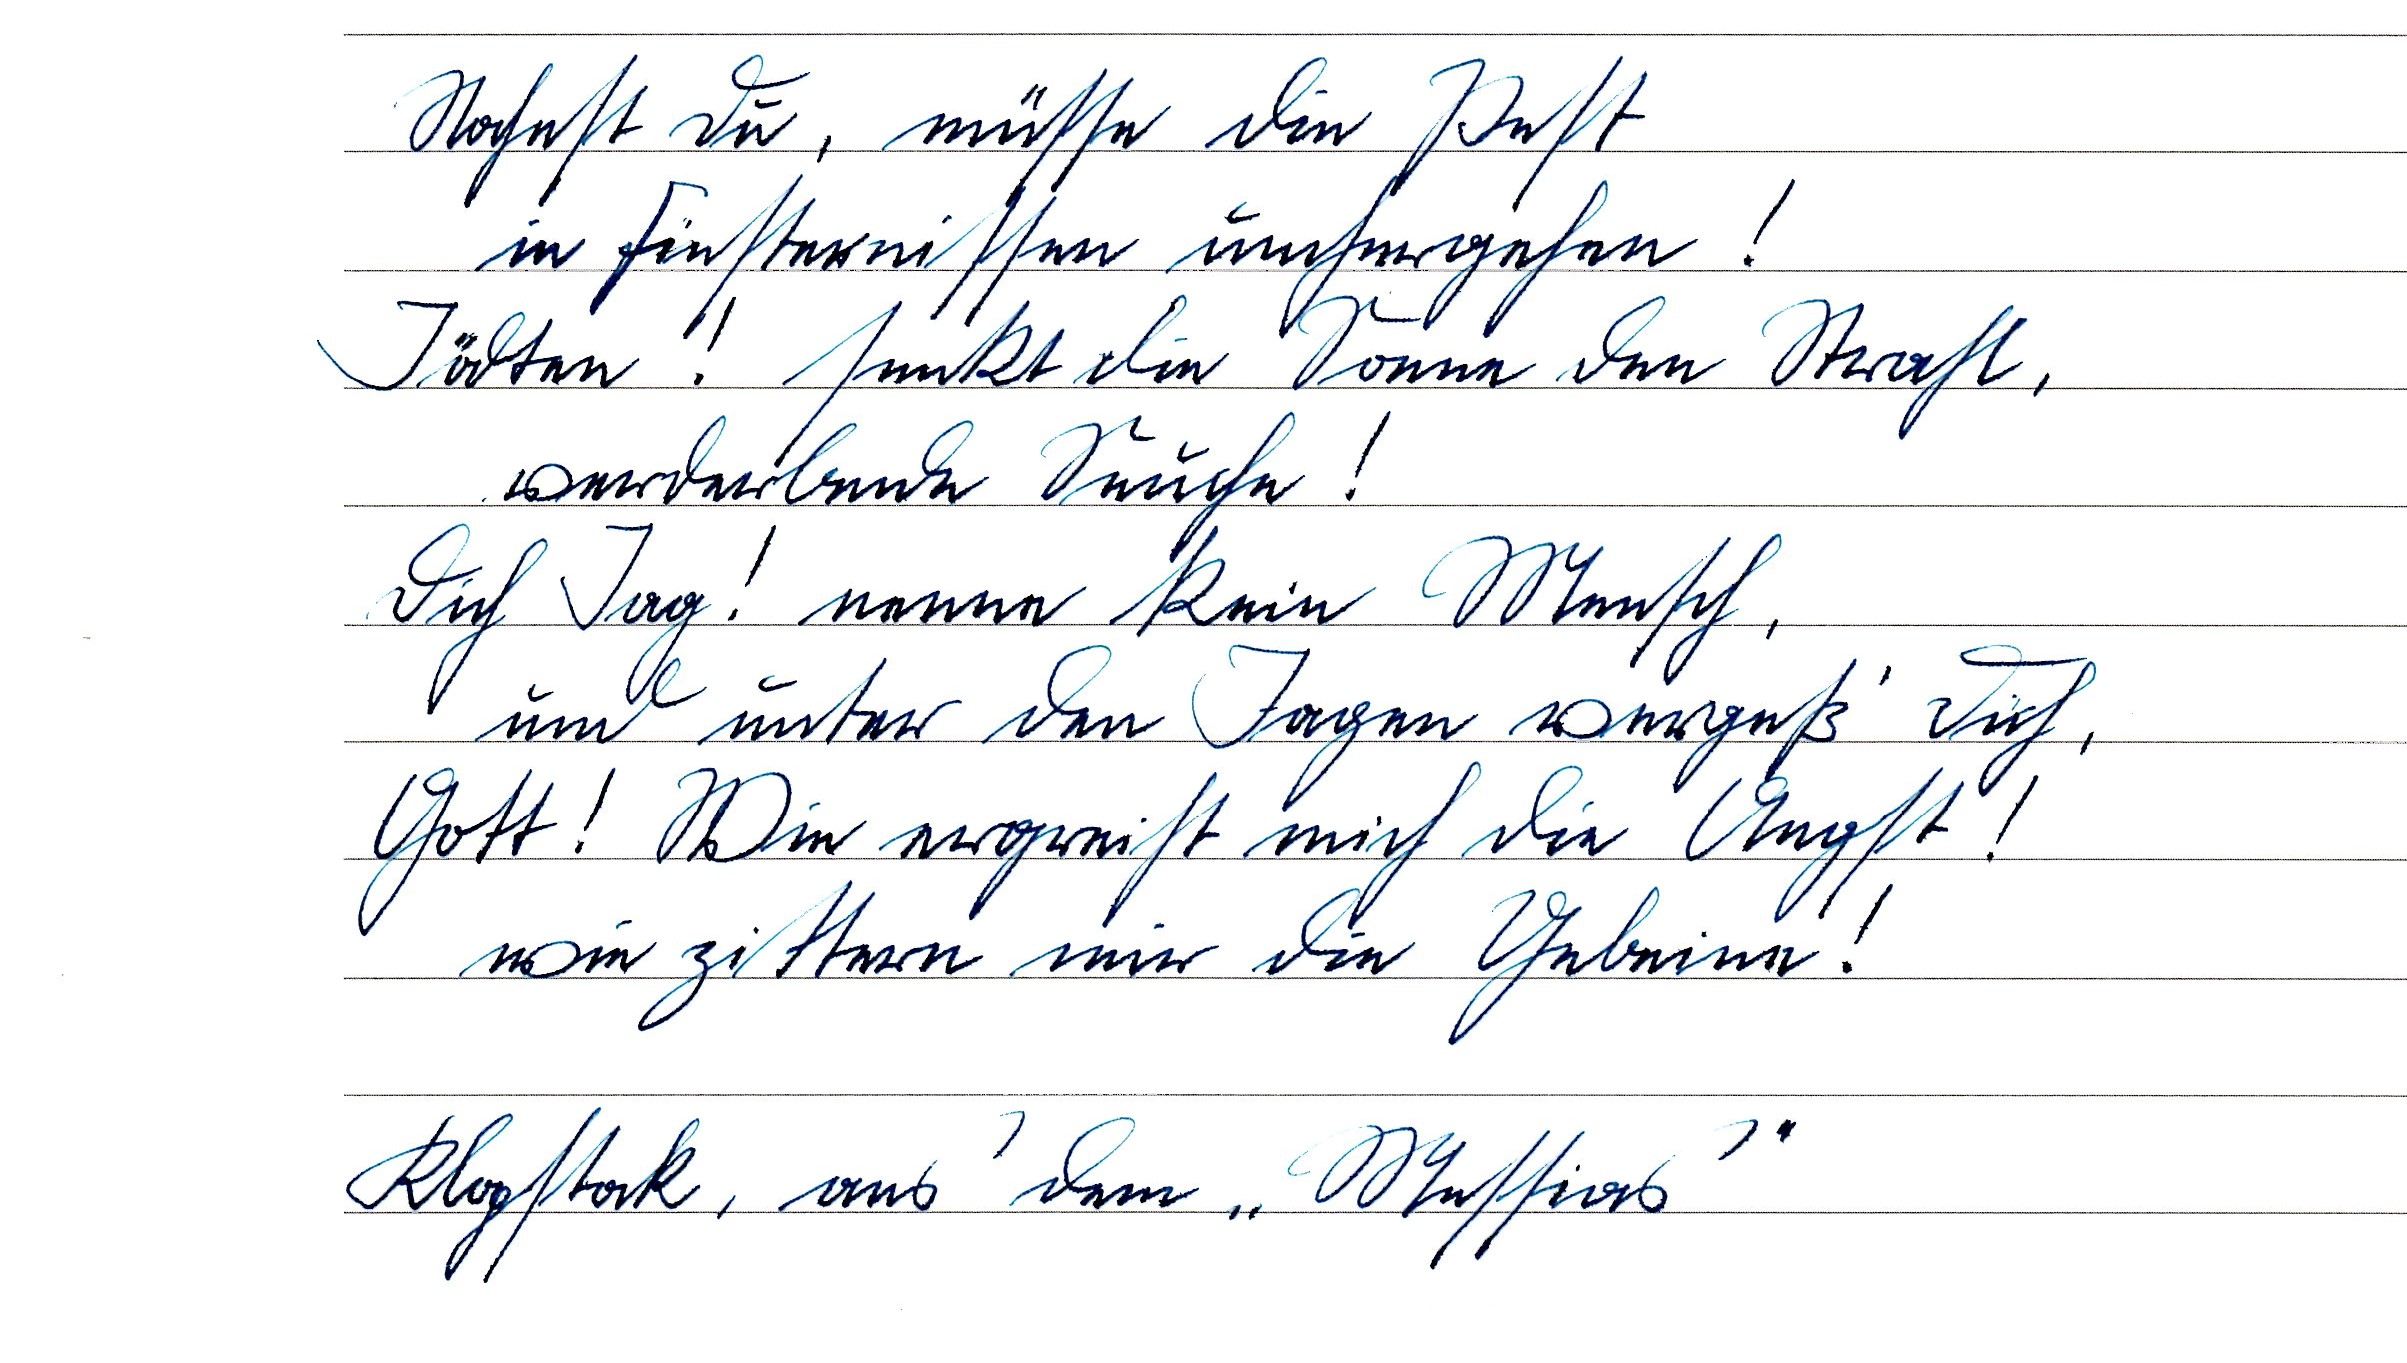 Nahest du, müsse die Pest
in Finsternissen umhergehen!
Tödten! senkt die Sonne den Strahl,
verderbende Seuche!
Dich Tag! nenne kein Mensch,
und unter den Tagen vergeß' Dich,
Gott! Wie ergreift mich die Angst!
wie zittern mir die Gebeine!
Klopstok, aus dem „Messias“